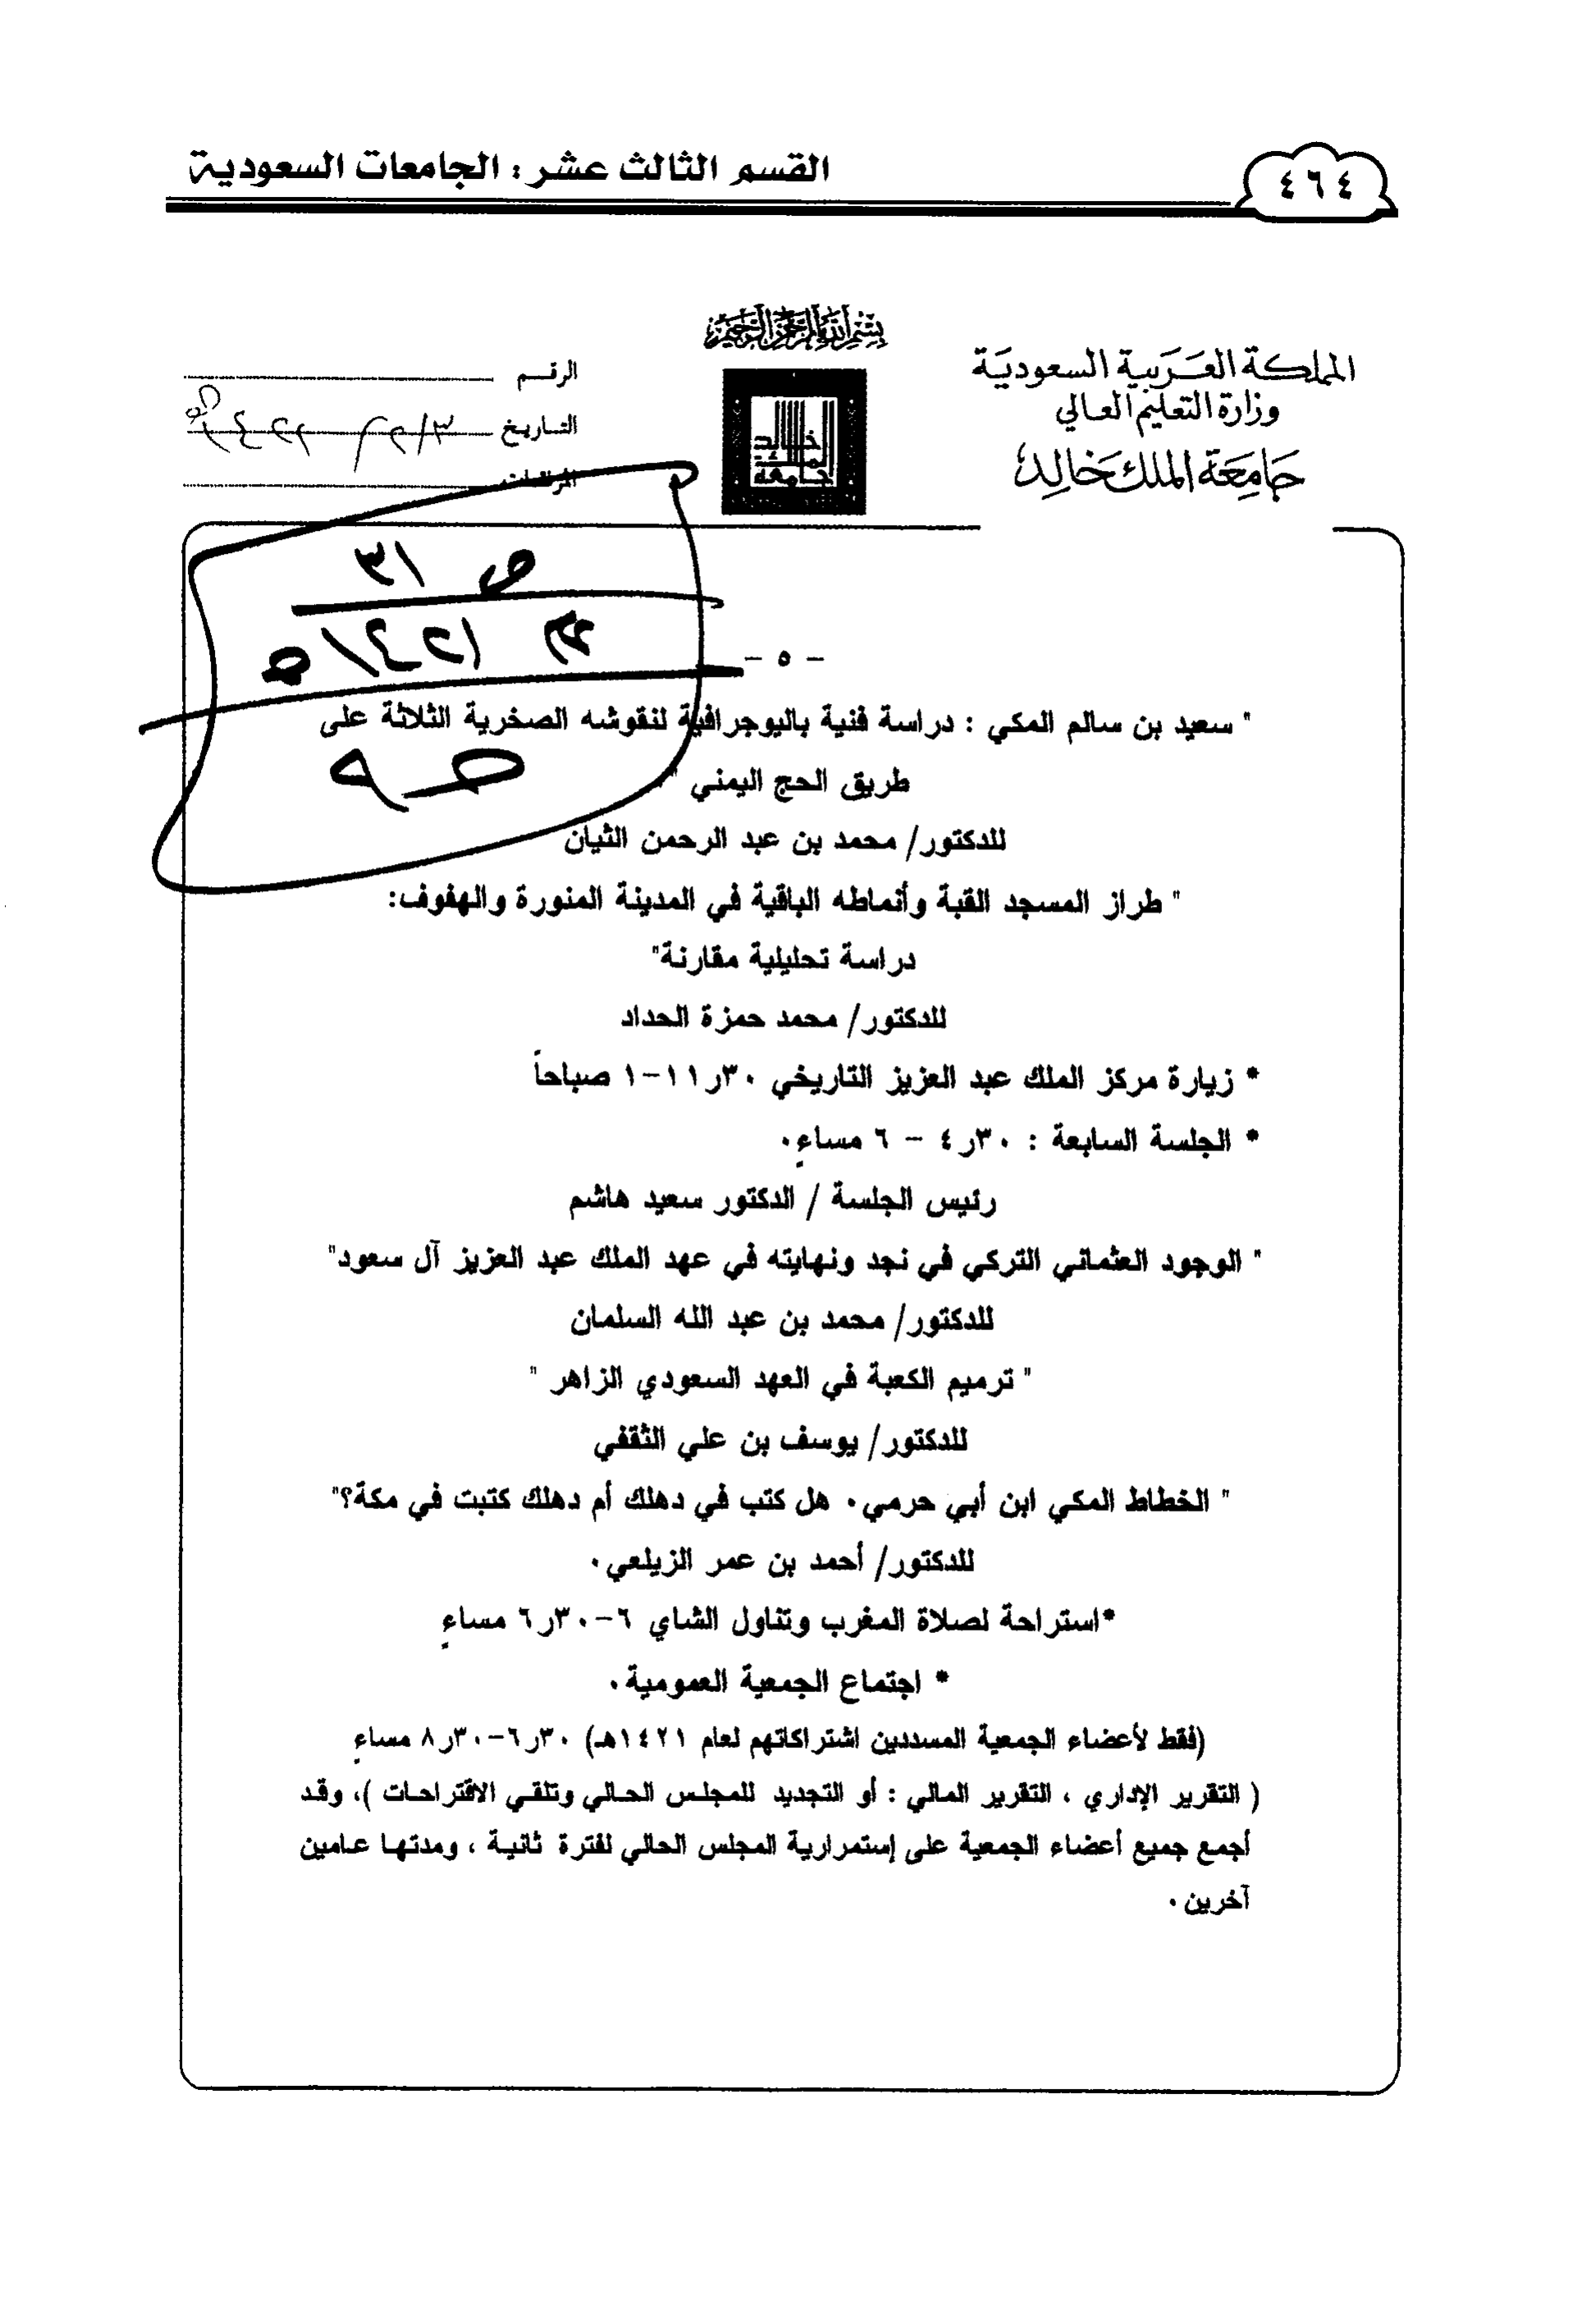 ٤٦٤
القسم الثالث عشر : الجامعات السعودية
بسم الله الرحمن الرحيم
المملكة العربية السعودية
وزارة التعليم العالي
جامعة الملك خالد
جامعة
الملك
خالد
الرقم
التاريخ
المرفقات
ص ٣١
- ٥ -
" سعيد بن سالم المكي : دراسة فنية باليوجرافية لنقوشه الصخرية الثلاثة على
طريق الحج اليمني "
للدكتور/ محمد بن عبد الرحمن الثيان
" طراز المسجد القبة وأنماطه الباقية في المدينة المنورة والهفوف:
دراسة تحليلية مقارنة"
للدكتور/ محمد حمزة الحداد
* زيارة مركز الملك عبد العزيز التاريخي ٣٠ر١١-١ صباحاً
* الجلسة السابعة : ٣٠ر٤ - ٦ مساءٍ٠
رئيس الجلسة / الدكتور سعيد هاشم
" الوجود العثماني التركي في نجد ونهايته في عهد الملك عبد العزيز آل سعود"
للدكتور/ محمد بن عبد الله السلمان
" ترميم الكعبة في العهد السعودي الزاهر "
للدكتور/ يوسف بن علي الثقفي
" الخطاط المكي ابن أبي حرمي٠ هل كتب في دهلك أم دهلك كتبت في مكة؟"
للدكتور/ أحمد بن عمر الزيلعي٠
*استراحة لصلاة المغرب وتناول الشاي ٦-٣٠ر٦ مساءٍ
* اجتماع الجمعية العمومية٠
(فقط لأعضاء الجمعية المسددين اشتراكاتهم لعام ١٤٢١هـ) ٣٠ر٦-٣٠ر٨ مساءٍ
( التقرير الإداري ، التقرير المالي : أو التجديد للمجلس الحالي وتلقي الاقتراحات )، وقد
أجمع جميع أعضاء الجمعية على إستمرارية المجلس الحالي لفترة ثانية ، ومدتها عامين
آخرين ٠